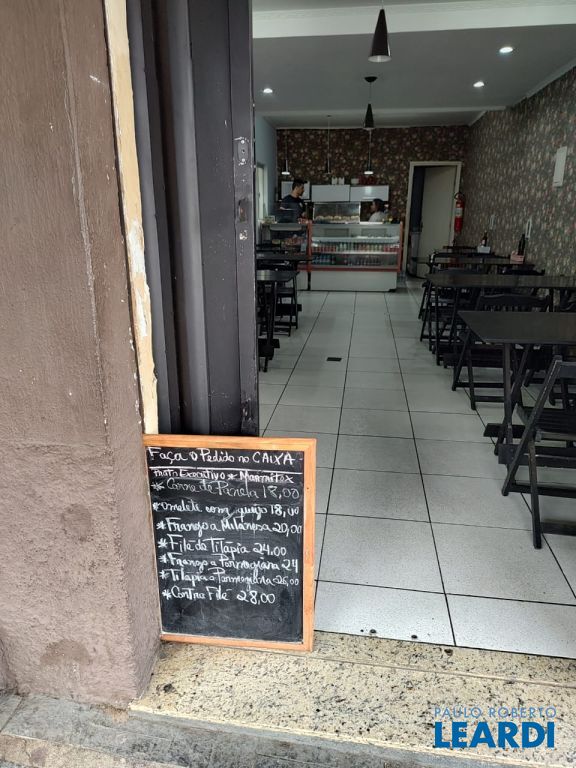 Faça o Pedido no CAIXA
Prato Executivo * Marmitex
* Carne de Panela 18,00
omelete com queijo 18,00
* Frango a Milanesa 20,00
* Filé de Tilápia 24.00
* Frango a Parmegiana 24
* Tilapia a Parmegiana 26,00
* Contra Filé 28,00
PAULO ROBERTO
LEARDI